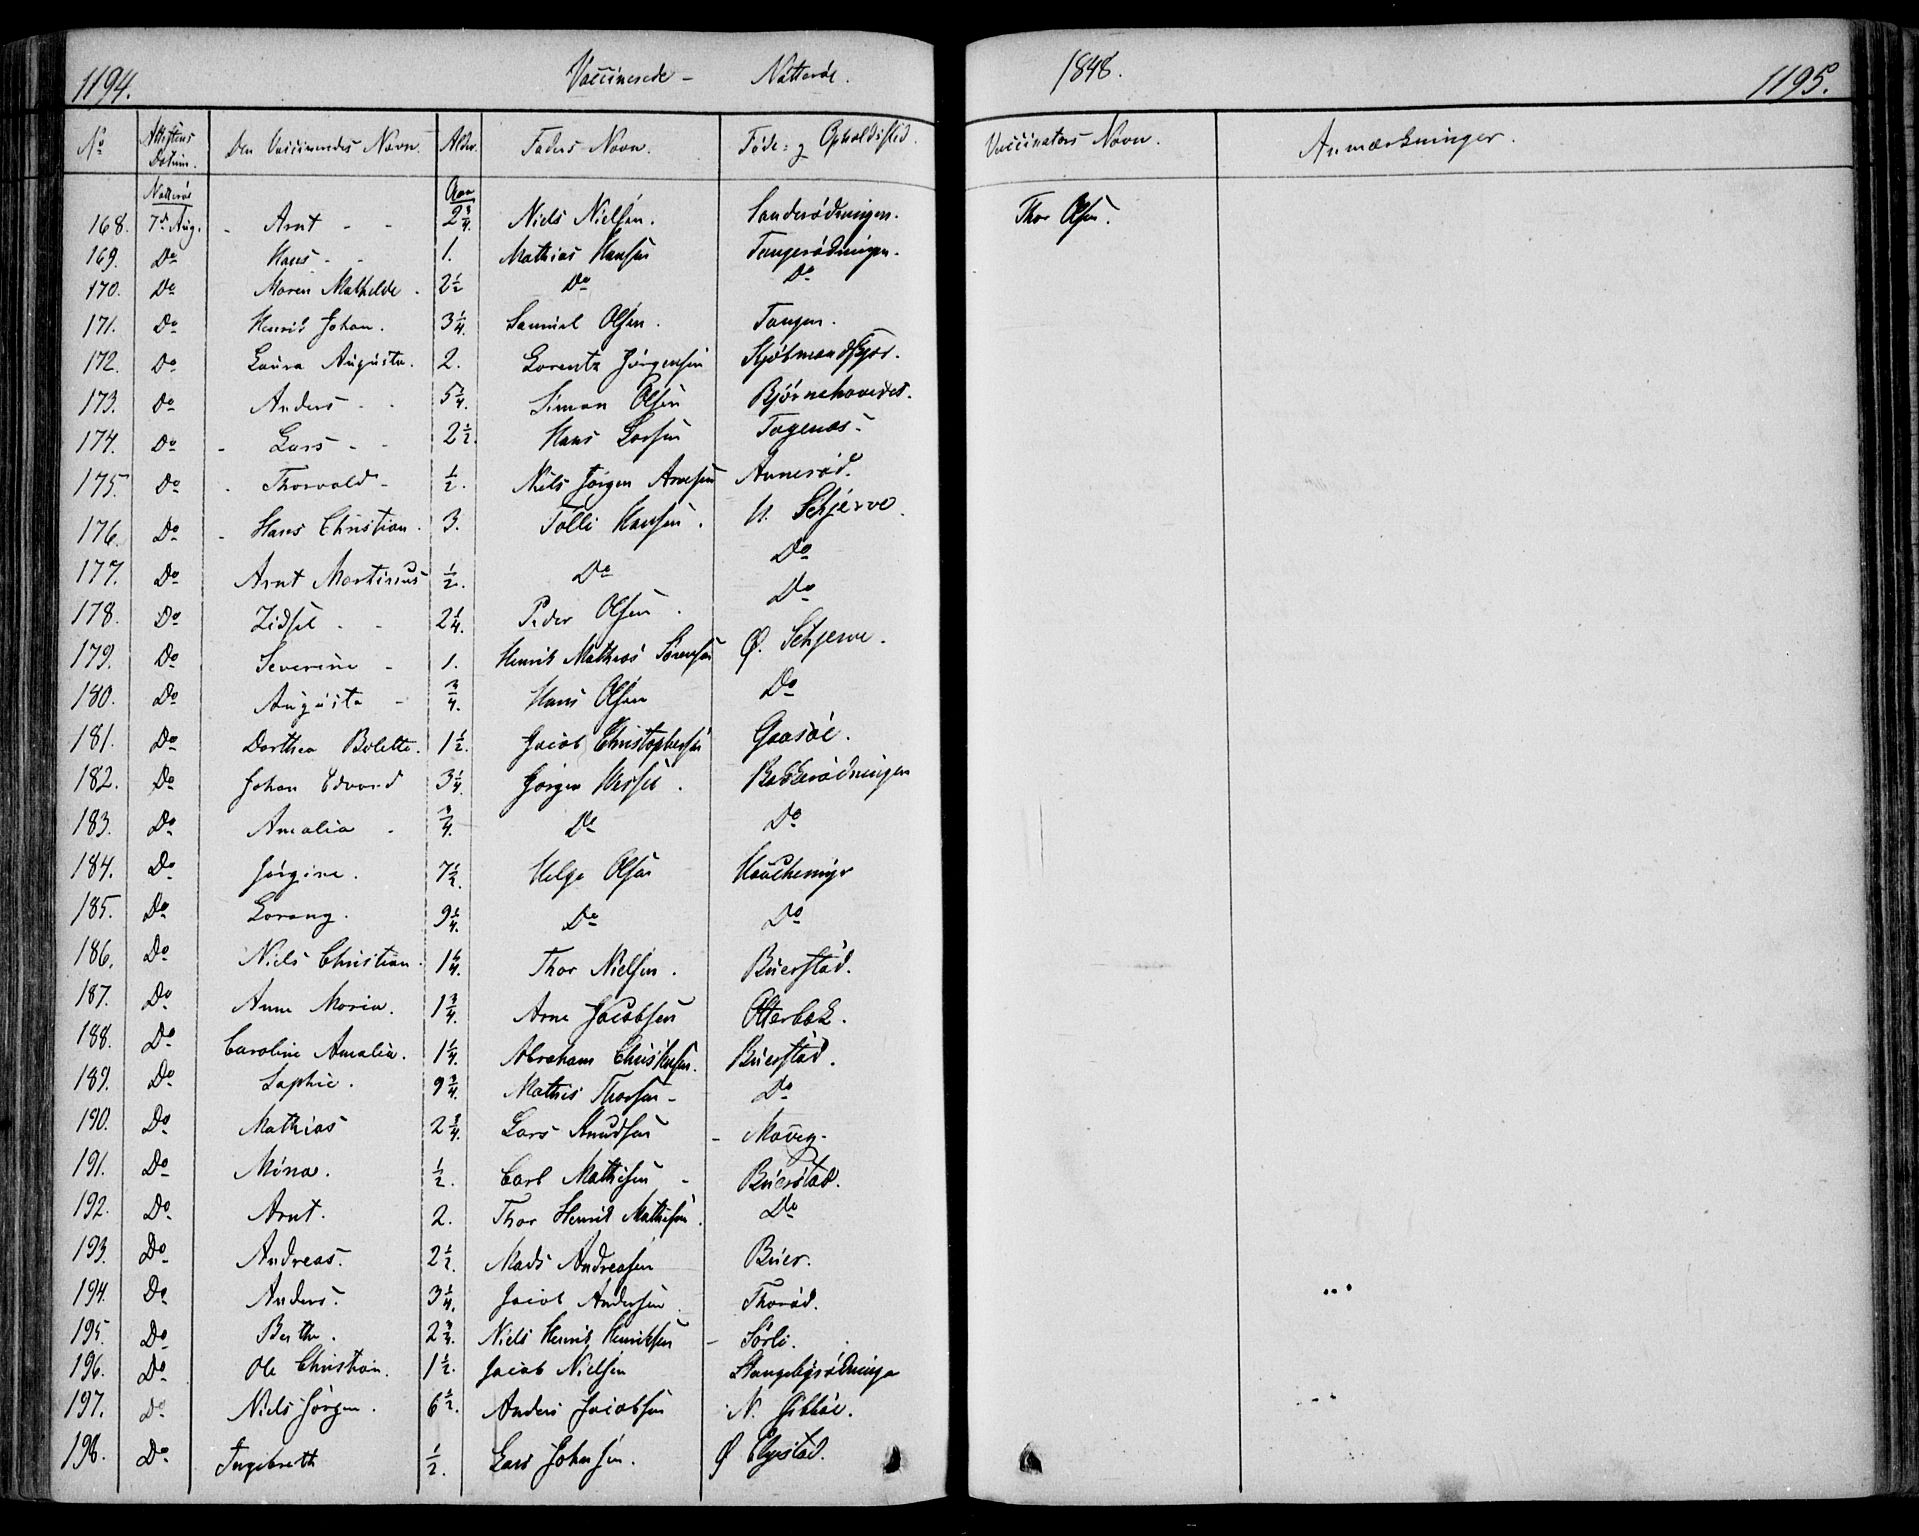 1194. Vaccinerede – Nøtterøe. 1848. 1195.
No Attestens Datum. Den Vaccineredes Navn. Alder. Faders Navn. Føde- og Opholdssted. Vaccinators Navn. Anmærkninger.
Nøtterøe Aar
168. 7de Aug. - Arnt - - 2 3/4. Niels Nielsen. Sanderødningen. Thor Olsen.
169. Do Hans - - 1. Mathias Hansen Tangerødningen.
170. Do Maren Mathilde. 2 1/2 Do Do
171. Do Henrik Johan. 3 1/4. Samuel Olsen. Tangen.
172. Do Laura Augusta. 2. Lorentz Jørgensen
173. Do Anders - - 5 3/4. Simon Olsen Bjørnehovedet.
174. Do - Lars - - 2 1/2. Hans Larsen Tagenæs -
175. Do - Thorvald - 1/2. Niels Jørgen Arnesen Annerød.
176. Do - Hans Christian. 3. Tolli Hansen. N. Schjerve.
177. Do Arnt Martinius 1/2. Do Do
178. Do Zidsel - - 2 1/4. Peder Olsen. Do
179. Do Severine - 1. Henrik Mathias Sørensen Ø. Schjerve.
180. Do Augusta - 3/4. Hans Olsen Do
181. Do Dorthea Bolette. 1 1/2. Jacob Christophersen Gaasøe.
182. Do Johan Edvard 3 1/4. Jørgen Hessel. Bakkerødningen
183. Do Amalia - 3/4. Do Do
184. Do Jørgine. 7 1/2. Helge Olsen Hauchemyr
185. Do Lorang. 9 1/4. Do Do
186. Do Niels Christian. 1 1/4. Thor Nielsen. Buerstad.
187. Do Anne Maria. 1 3/4. Arne Jacobsen Otterbæk.
188. Do Caroline Amalia. 1 1/4. Abraham Christensen. Buerstad.
189. Do Sophie. 9 3/4. Mathis Thorsen - Do
190. Do Mathias 2 3/4. Lars Knudsen - Moveg -
191. Do Mina. 1/2. Carl Mathisen - Buerstad.
192. Do Arnt. 2. Thor Henrik Mathisen. Do
193. Do Andreas. 2 1/2. Mads Andreasen Buer.
194. Do Anders. 3 1/4. Jacob Andersen. Thorød.
195. Do Berthe. 2 3/4. Niels Henrik Henriksen - Sørli.
196. Do Ole Christian. 1 1/2. Jacob Nielsen Stangebyrødningen
197. Do Niels Jørgen. 6 1/2. Anders Jacobsen N. Gibbøe.
198. Do Ingebreth 1/2. Lars Johnsen. Ø Elgestad.